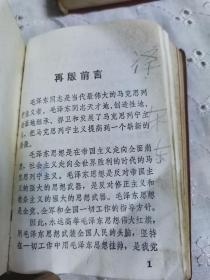 再版前言
毛泽东同志是当代最伟大的马克思列
宁主义者。毛泽东同志天才地、创造性地、
全面地继承、捍卫和发展了马克思列宁主
义，把马克思列宁主义提高到一个崭新的
阶段。
毛泽东思想是在帝国主义走向全面崩
溃，社会主义走向全世界胜利的时代的马克
思列宁主义。毛泽东思想是反对帝国主
义的强大的思想武器，是反对修正主义和
教条主义的强大的思想武器。毛泽东思想
是全党、全军和全国一切工作的指导方针。
因此，永远高举毛泽东思想伟大红旗，
用毛泽东思想武装全国人民的头脑，坚持
在一切工作中用毛泽东思想挂帅，是我党
1
泽
东